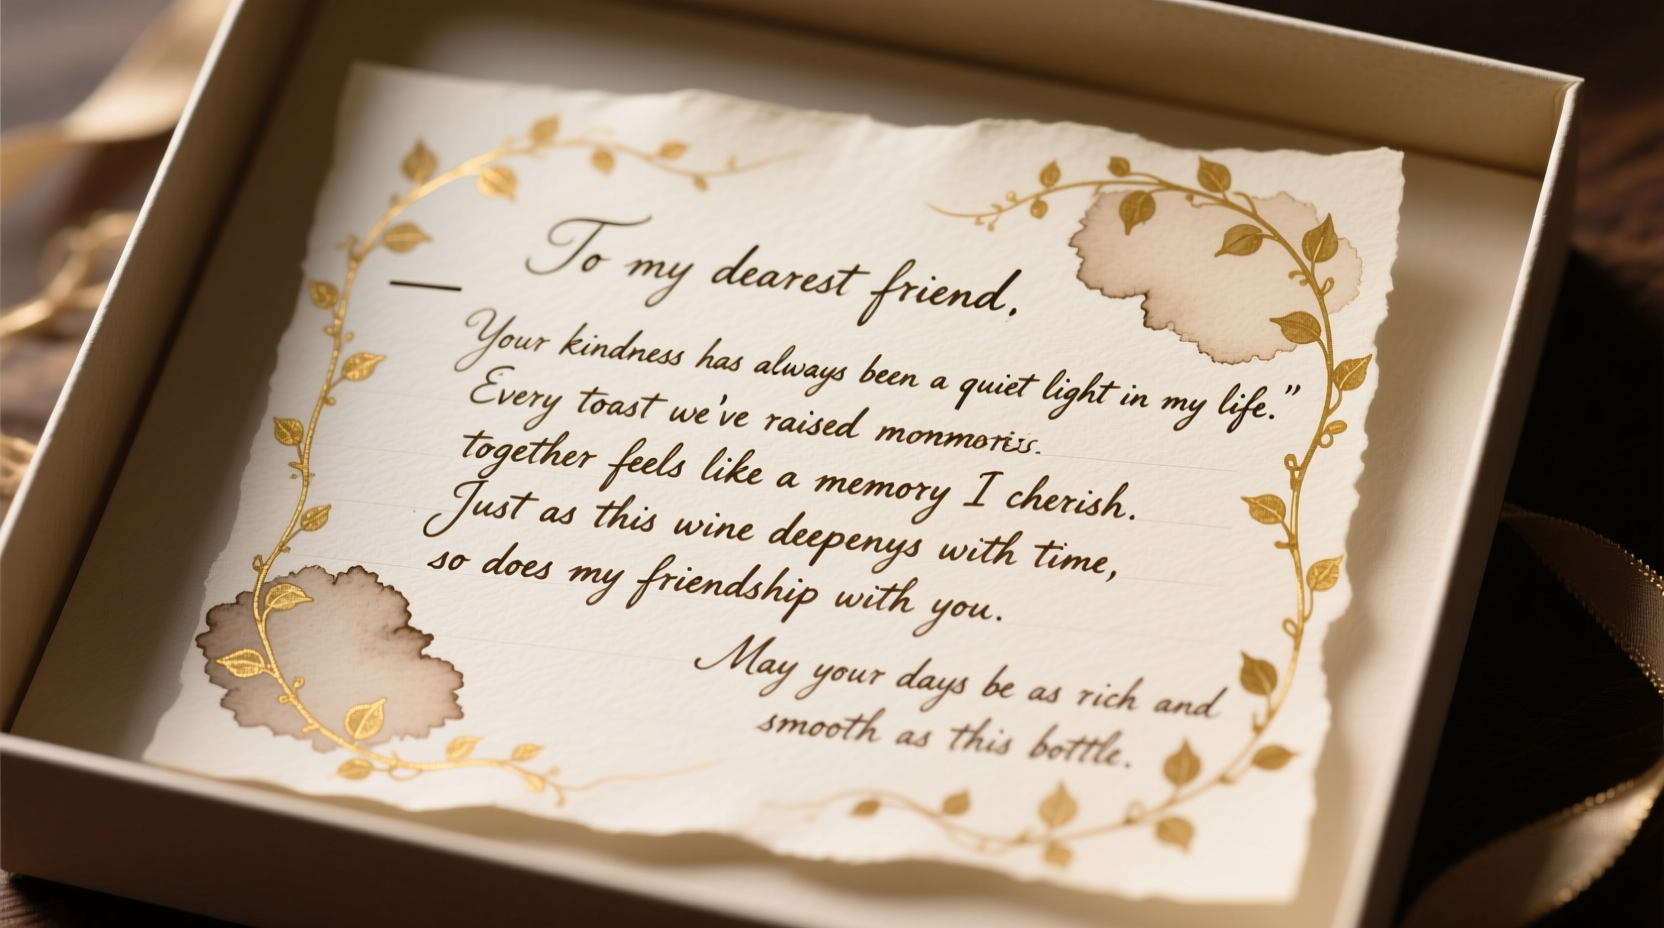 To my dearest friend,
Your kindness has always been a quiet light in my life.”
Every toast we've raised
together feels like a memory I cherish.
Just as this wine deepenys with time,
so does my friendship with you.
May your days be as rich and
smooth as this bottle.